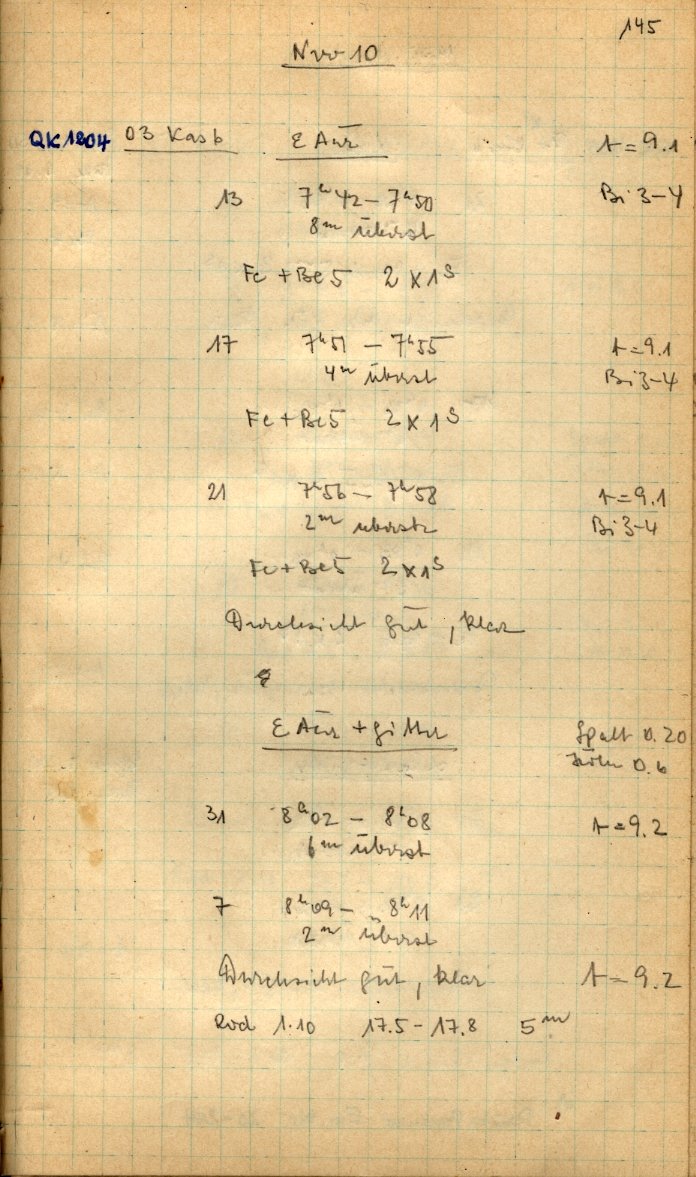 145
Nov 10
QK1204 03 Kasb ε Aur t = 9.1
13 7ʰ42 – 7ʰ50 Bi 3–4
8ᵐ überst
Fe + Be 5 2 x 1ˢ
17 7ʰ51 – 7ʰ55 t = 9.1
4ᵐ überst Bi 3–4
Fe + Be 5 2 x 1ˢ
21 7ʰ56 – 7ʰ58 t = 9.1
2ᵐ überst Bi 3–4
Fe + Be 5 2 x 1ˢ
Durchsicht gut, klar
ε Aur + Gitter Spalt 0.20
0.6
31 8ʰ02 – 8ʰ08 t = 9.2
6ᵐ überst
7 8ʰ09 – 8ʰ11
2ᵐ überst
Durchsicht gut, klar t = 9.2
Rod 1.10 17.5 – 17.8 5ᵐ